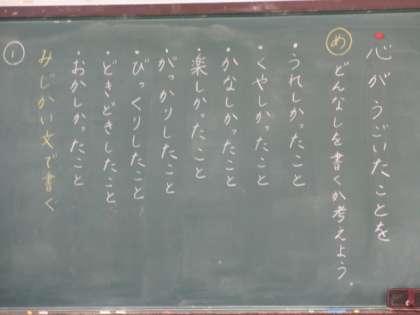 心がうごいたことを
め どんなしを書くか考えよう。
・うれしかったこと
・くやしかったこと
・かなしかったこと
・楽しかったこと
・がっかりしたこと
・びっくりしたこと
・どきどきしたこと
・おかしかったこと
みじかい文で書く
①